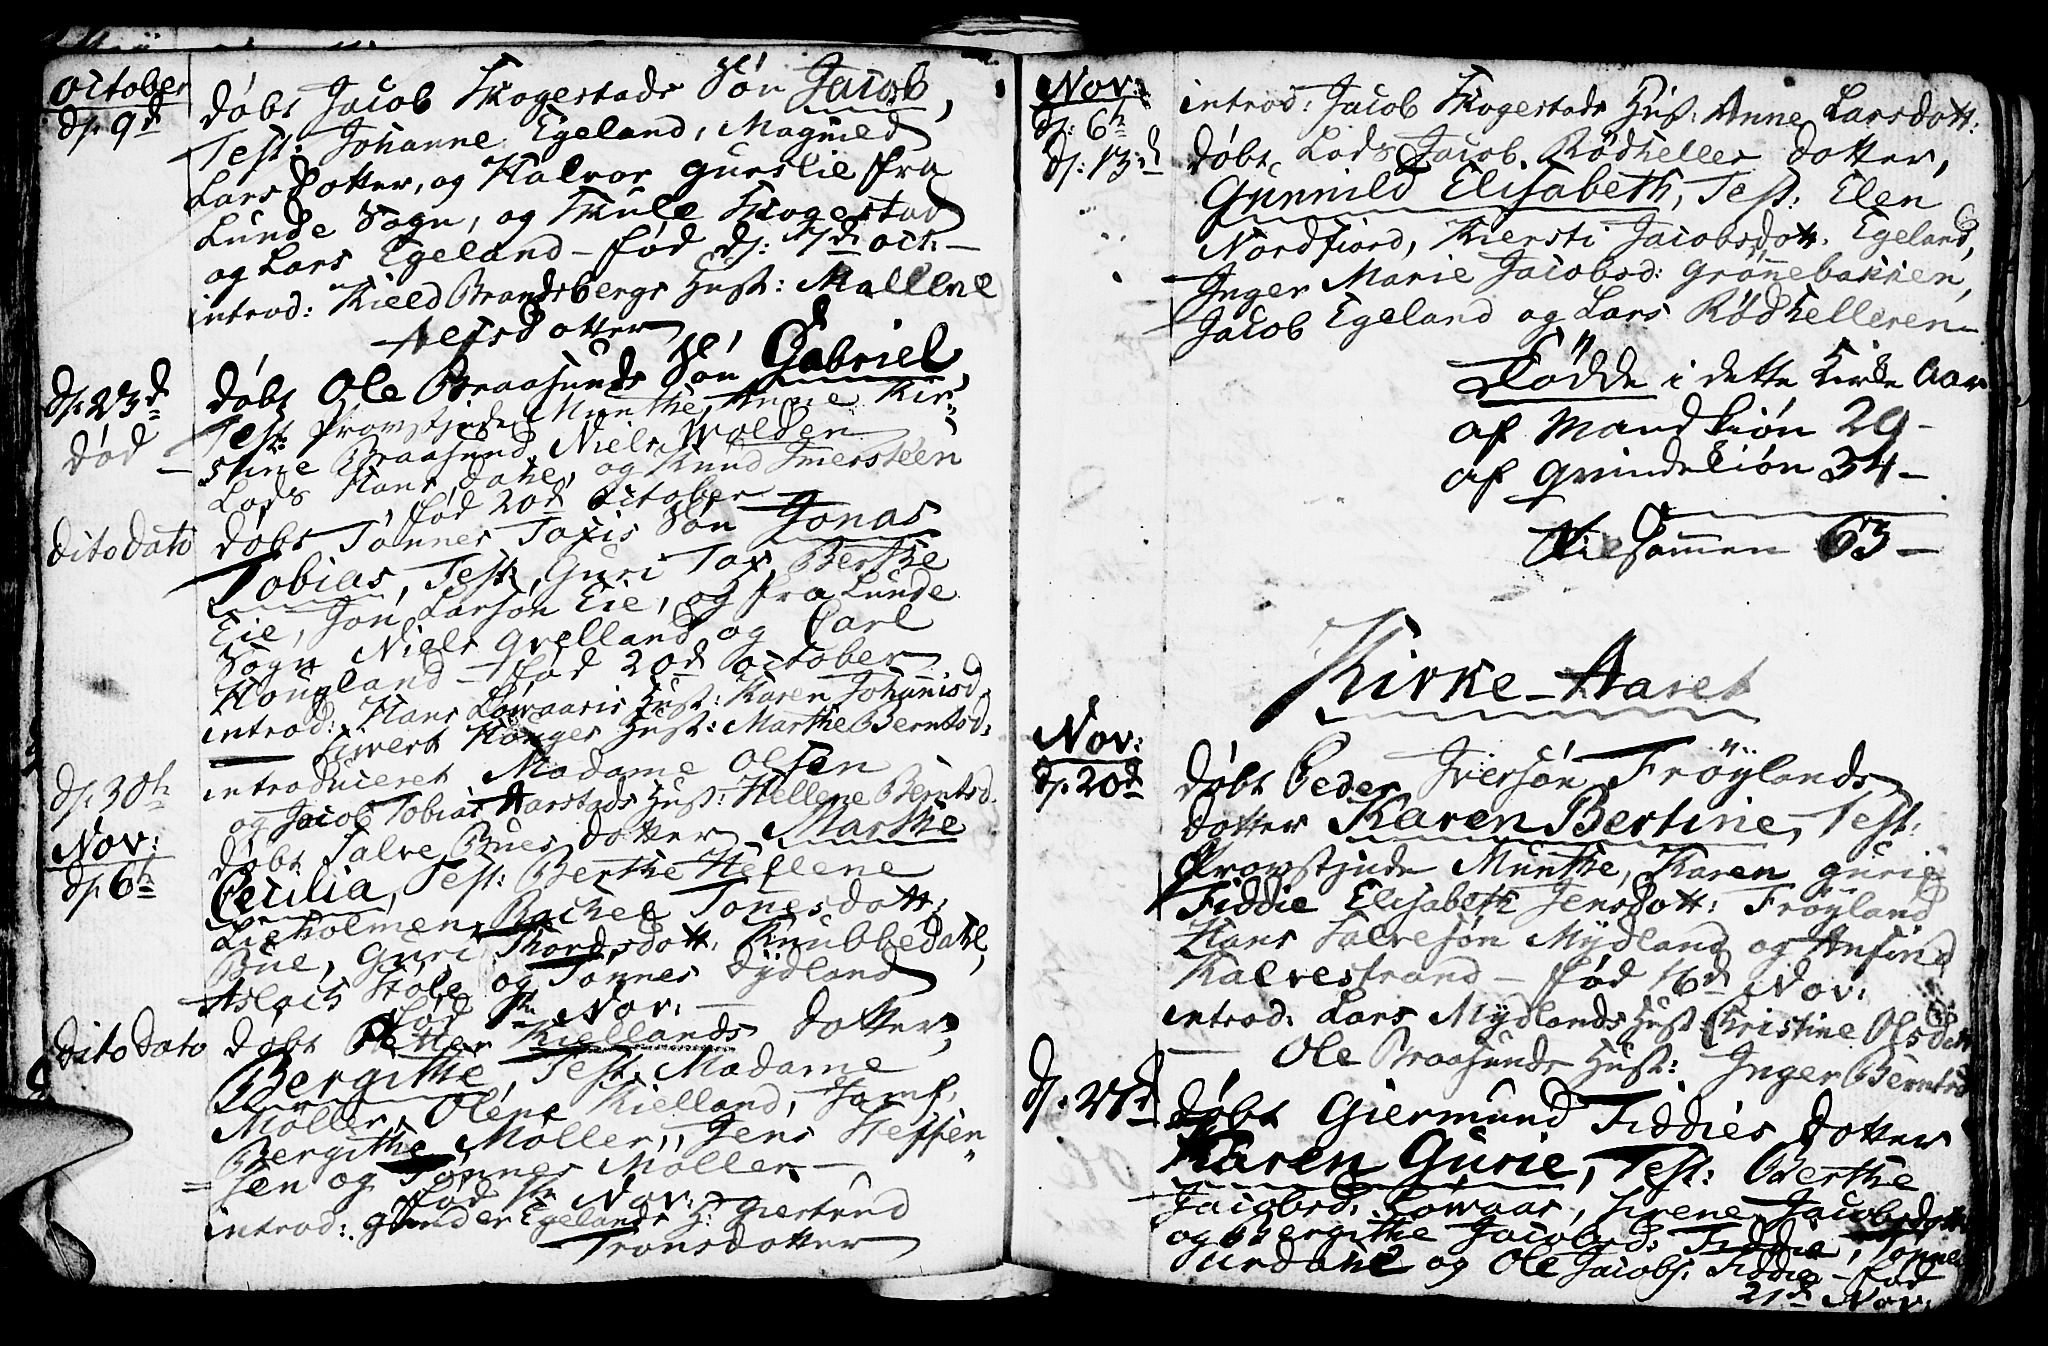 October
dj. 9d
døbt Jacob Skogestads Søn Jacob,
Test: Johanne Egeland, Magnild
Larsdotter, og Halvor Gurslie fra
Lunde Sogn, og Skule Skogestad
og Lars Egeland - fød dj: 7d oct: -
introd: Kield Brandsbergs Hust: Mallene
Alfsdotter
dj. 23d
død
døbt Ole Braasunds Søn Gabriel,
Test: Provstinde Munthe, Anne Kir-
stine Braasund, Niels Wolden
Lods Hans Dahl, og Knud Imersteen
fød 20d October
dito dato
døbt Tønnes Taxis Søn Jonas
Tobias, Test: Guri Tax, Berthe
Eie, Jon Larson Eie, og fra Lunde
Sogn Niels Qvelland og Carl
Hougland - fød 20d October
introd: Hans Løvaasis Hust: Karen Johannisd.
Sivert Houges Hust: Marthe Berntsd:
dj. 30th
introduceret Madame Olsen
og Jacob Tobias Aarstads Hust: Hellene Berntsd.
Nov:
dj. 6th
døbt Salve Bues dotter Marthe
Cecilia, Test: Berthe Hellene
Lieholmen, Rachel Tonesdott.
Bue, Guri Thordsdott. Knubbedahl,
Aslach Stole og Tønnes Dydland
fød Nov: -
dito dato
døbt Petter Kiellands dotter
Bergithe, Test: Madame
Møller, Olene Kielland, Jomf.
Bergithe Møller, Jens Steffen-
sen og Tønnes Møller -
fød Nov: -
introd: Gunder Egelands H: Giertrud
Tronsdotter
Nov:
dj: 6th
introd: Jacob Skogestads Hust: Anne Larsdott:
dj: 13d
døbt Lods Jacob Rødhelles dotter,
Gunnild Elisabeth, Test: Elen
Nordfiord, Kiersti Jacobsdott. Egeland,
Inger Marie Jacobsd: Grønnebakken,
Jacob Egeland og Lars Rødhelleren
Fødde i dette Kirke Aar
af Mandkiøn 29 -
af Qvindekiøn 34 -
Tilsammen 63 -
Kirke-Aaret
Nov:
dj. 20d
døbt Peder Iversøn Frøylands
dotter Karen Bertine, Test:
Provstinde Munthe, Karen Gurie
Fiddie Elisabeth Jensdott: Frøyland
Hans Salvesøn Mydland og Anfind
Kalvestrand - fød 16d Nov:
introd: Lars Mydlands Hust: Christine Olsdott
Ole Braasunds Hust: Inger Berntsd
dj. 27d
døbt Giermund Fiddies dotter
Karen Gurie, Test: Berthe
Jacobsd. Løvaas, Sirene Jacobsdott
og Bergithe Jacobsd: Fiddie, Tønnes
Surdahl og Ole Jacobs: Fiddie - fød
21d Nov: